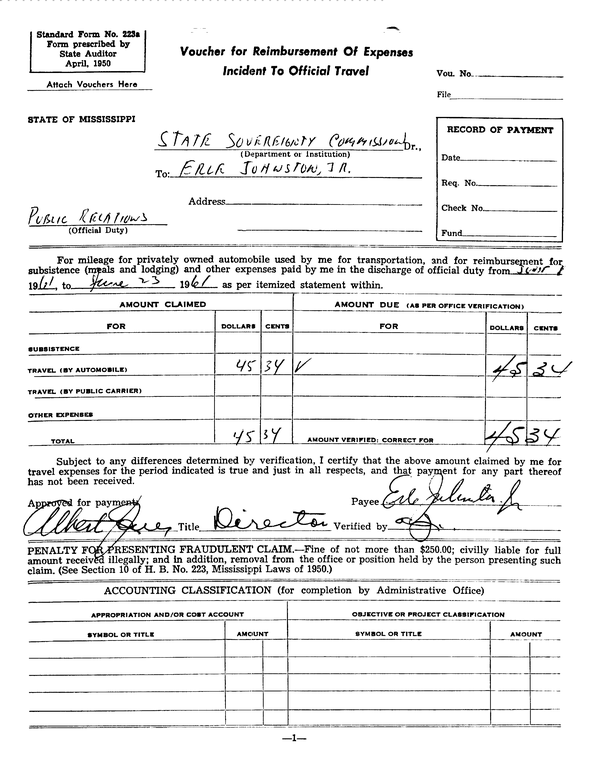 Standard Form No. 223a
Form prescribed by
State Auditor
April, 1950
Attach Vouchers Here
Voucher for Reimbursement Of Expenses
Incident To Official Travel
Vou. No.
File
STATE OF MISSISSIPPI
STATE SOVEREIGNTY COMMISSION Dr.,
(Department or Institution)
To: ERLE JOHNSTON, JR.
Address
PUBLIC RELATIONS
(Official Duty)
RECORD OF PAYMENT
Date
Req. No.
Check No.
Fund
For mileage for privately owned automobile used by me for transportation, and for reimbursement for
subsistence (meals and lodging) and other expenses paid by me in the discharge of official duty from June 1
1961, to June 23 1961 as per itemized statement within.
AMOUNT CLAIMED AMOUNT DUE (AS PER OFFICE VERIFICATION)
FOR DOLLARS CENTS FOR DOLLARS CENTS
SUBSISTENCE
TRAVEL (BY AUTOMOBILE) 45 34 √ 45 34
TRAVEL (BY PUBLIC CARRIER)
OTHER EXPENSES
TOTAL 45 34 AMOUNT VERIFIED; CORRECT FOR 45 34
Subject to any differences determined by verification, I certify that the above amount claimed by me for
travel expenses for the period indicated is true and just in all respects, and that payment for any part thereof
has not been received.
Approved for payment Payee Erle Johnston, Jr
Albert Jones Title Director Verified by
PENALTY FOR PRESENTING FRAUDULENT CLAIM.—Fine of not more than $250.00; civilly liable for full
amount received illegally; and in addition, removal from the office or position held by the person presenting such
claim. (See Section 10 of H. B. No. 223, Mississippi Laws of 1950.)
ACCOUNTING CLASSIFICATION (for completion by Administrative Office)
APPROPRIATION AND/OR COST ACCOUNT OBJECTIVE OR PROJECT CLASSIFICATION
SYMBOL OR TITLE AMOUNT SYMBOL OR TITLE AMOUNT
—1—